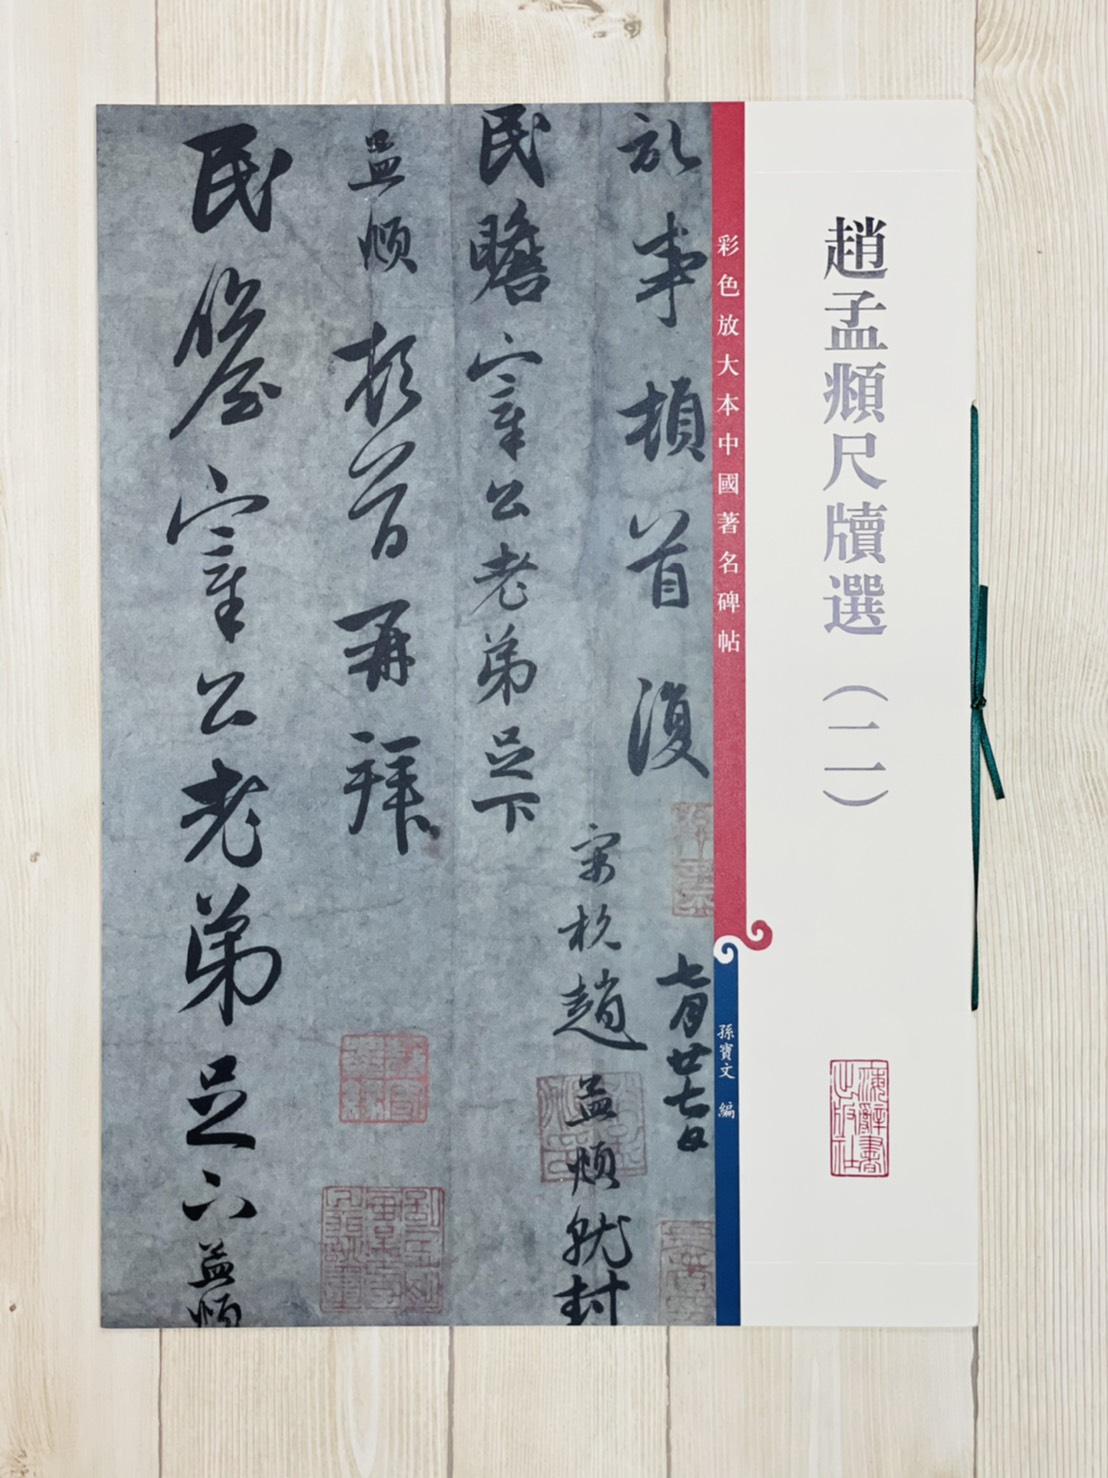 趙孟頫尺牘選（二）
上海辭書
出版社
彩色放大本中國著名碑帖
孫寶文 編
事頓首復
七月廿七日
趙孟頫就封
民瞻宰公老弟足下
孟頫頓首再拜
民瞻宰公老弟足下孟頫